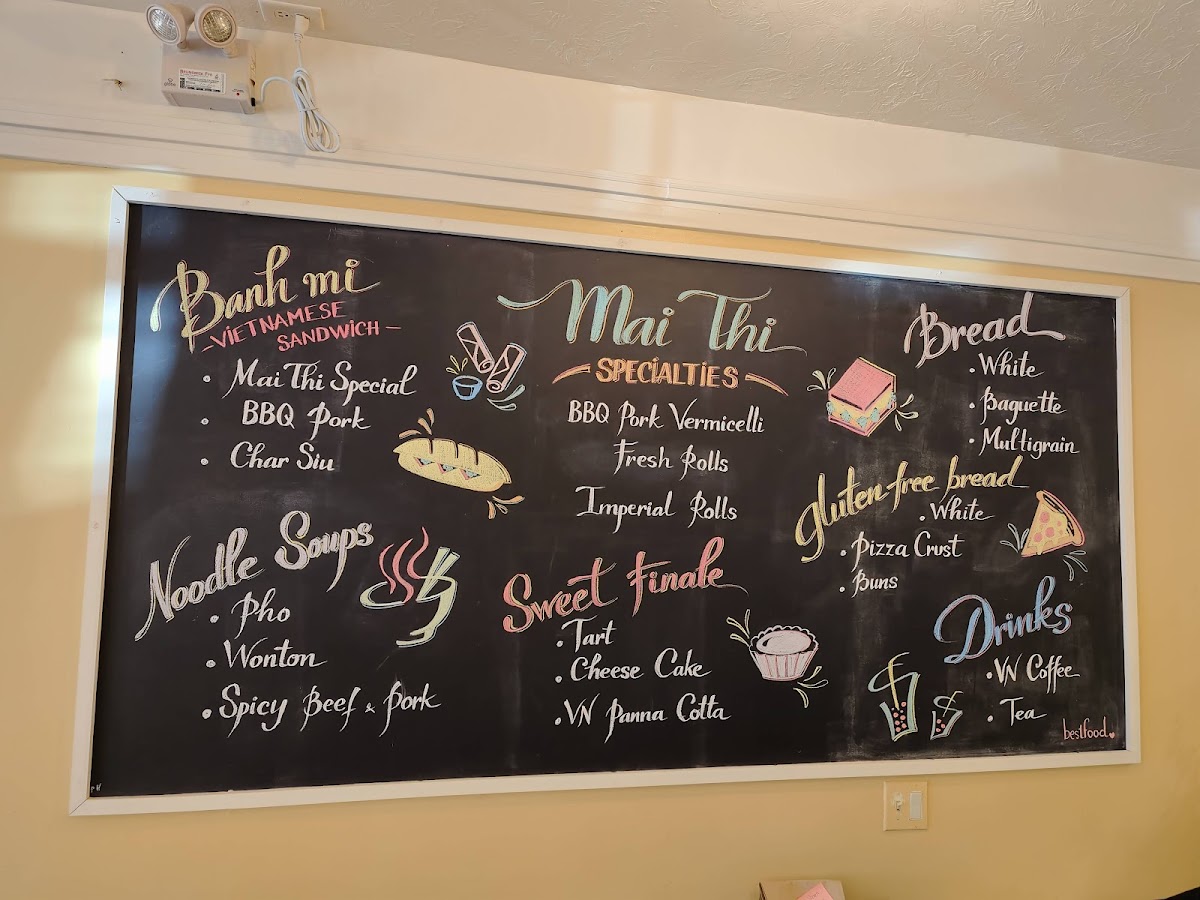 Banh mi
-VIETNAMESE
SANDWICH-
• Mai Thi Special
• BBQ Pork
• Char Siu
Noodle Soups
• Pho
• Wonton
• Spicy Beef & Pork
Mai Thi
SPECIALTIES
BBQ Pork Vermicelli
Fresh Rolls
Imperial Rolls
Sweet Finale
• Tart
• Cheese Cake
• VN Panna Cotta
Bread
• White
• Baguette
• Multigrain
gluten free bread
• White
• Pizza Crust
• Buns
Drinks
• VN Coffee
• Tea
bestfood